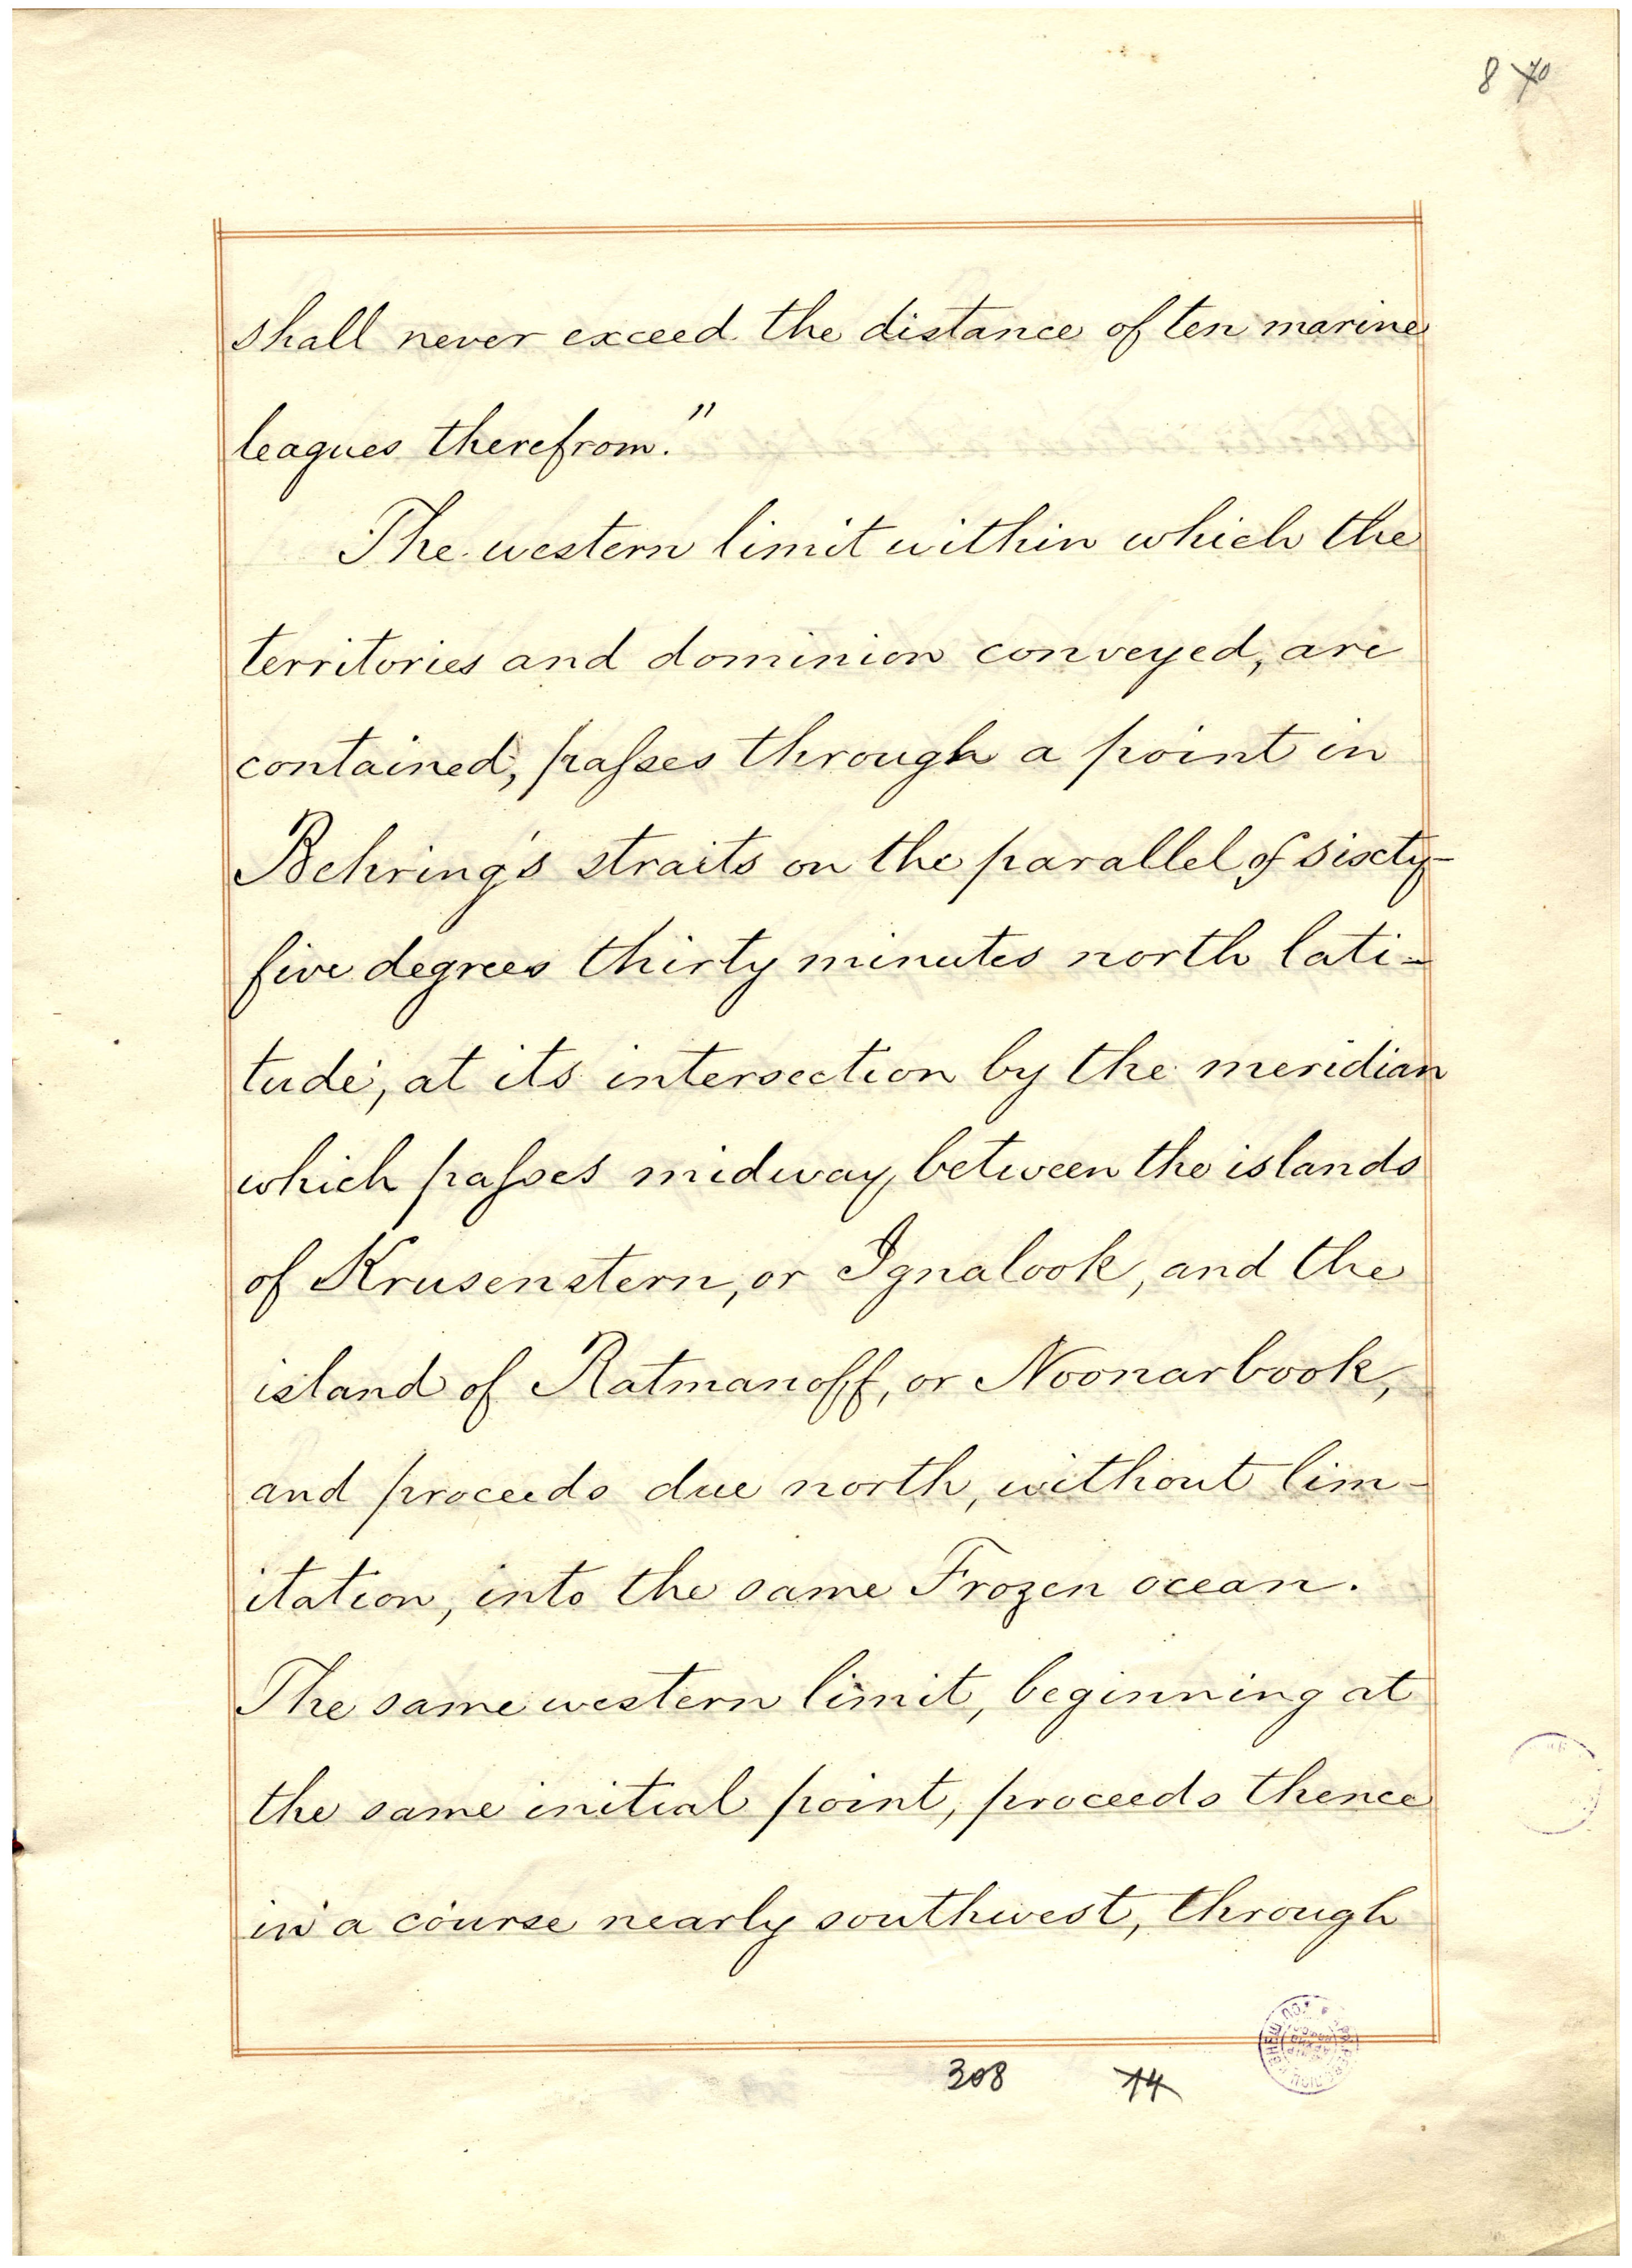 8 70
shall never exceed the distance of ten marine
leagues therefrom."
The western limit within which the
territories and dominion conveyed, are
contained, passes through a point in
Behring's straits on the parallel of sixty-
five degrees thirty minutes north lati-
tude, at its intersection by the meridian
which passes midway between the islands
of Krusenstern, or Ignalook, and the
island of Ratmanoff, or Noonarbook,
and proceeds due north, without lim-
itation, into the same Frozen ocean.
The same western limit, beginning at
the same initial point, proceeds thence
in a course nearly southwest, through
308 14